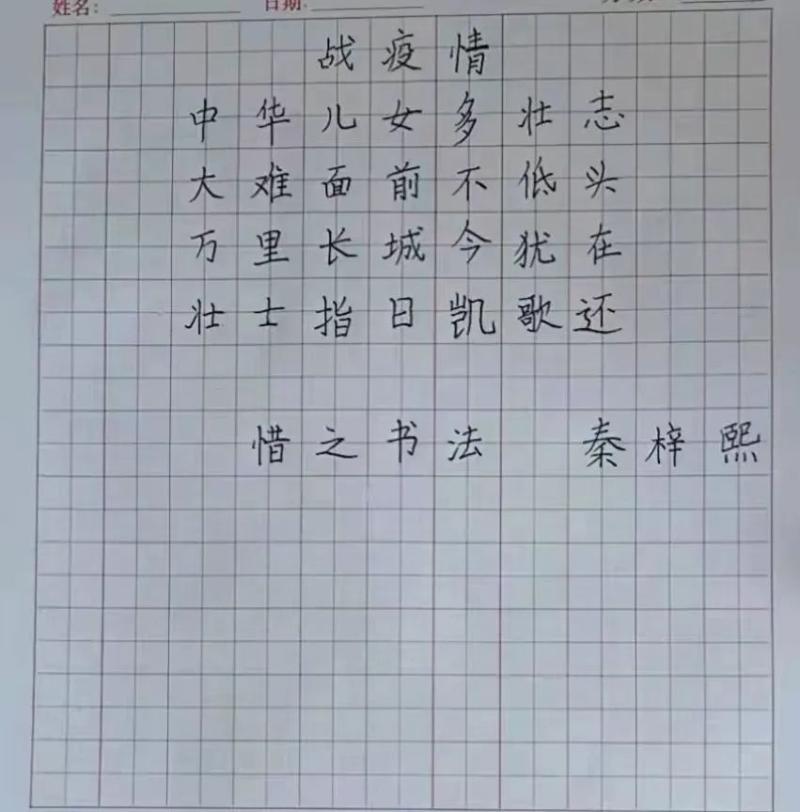 姓名: 日期:
战疫情
中华儿女多壮志
大难面前不低头
万里长城今犹在
壮士指日凯歌还
惜之书法 秦梓熙